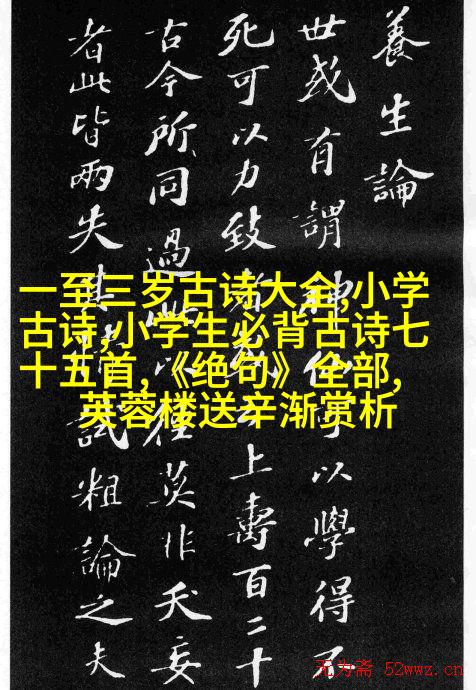 養生論
世或有謂神仙可以學得不
死可以力致者或云上壽百二十
古今所同過此以往莫非夭妄
者此皆兩失其情試粗論之夫
一至三岁古诗大全,小学
古诗,小学生必背古诗七
十五首,《绝句》全部,
芙蓉楼送辛渐赏析
无为斋 52wwz.cn